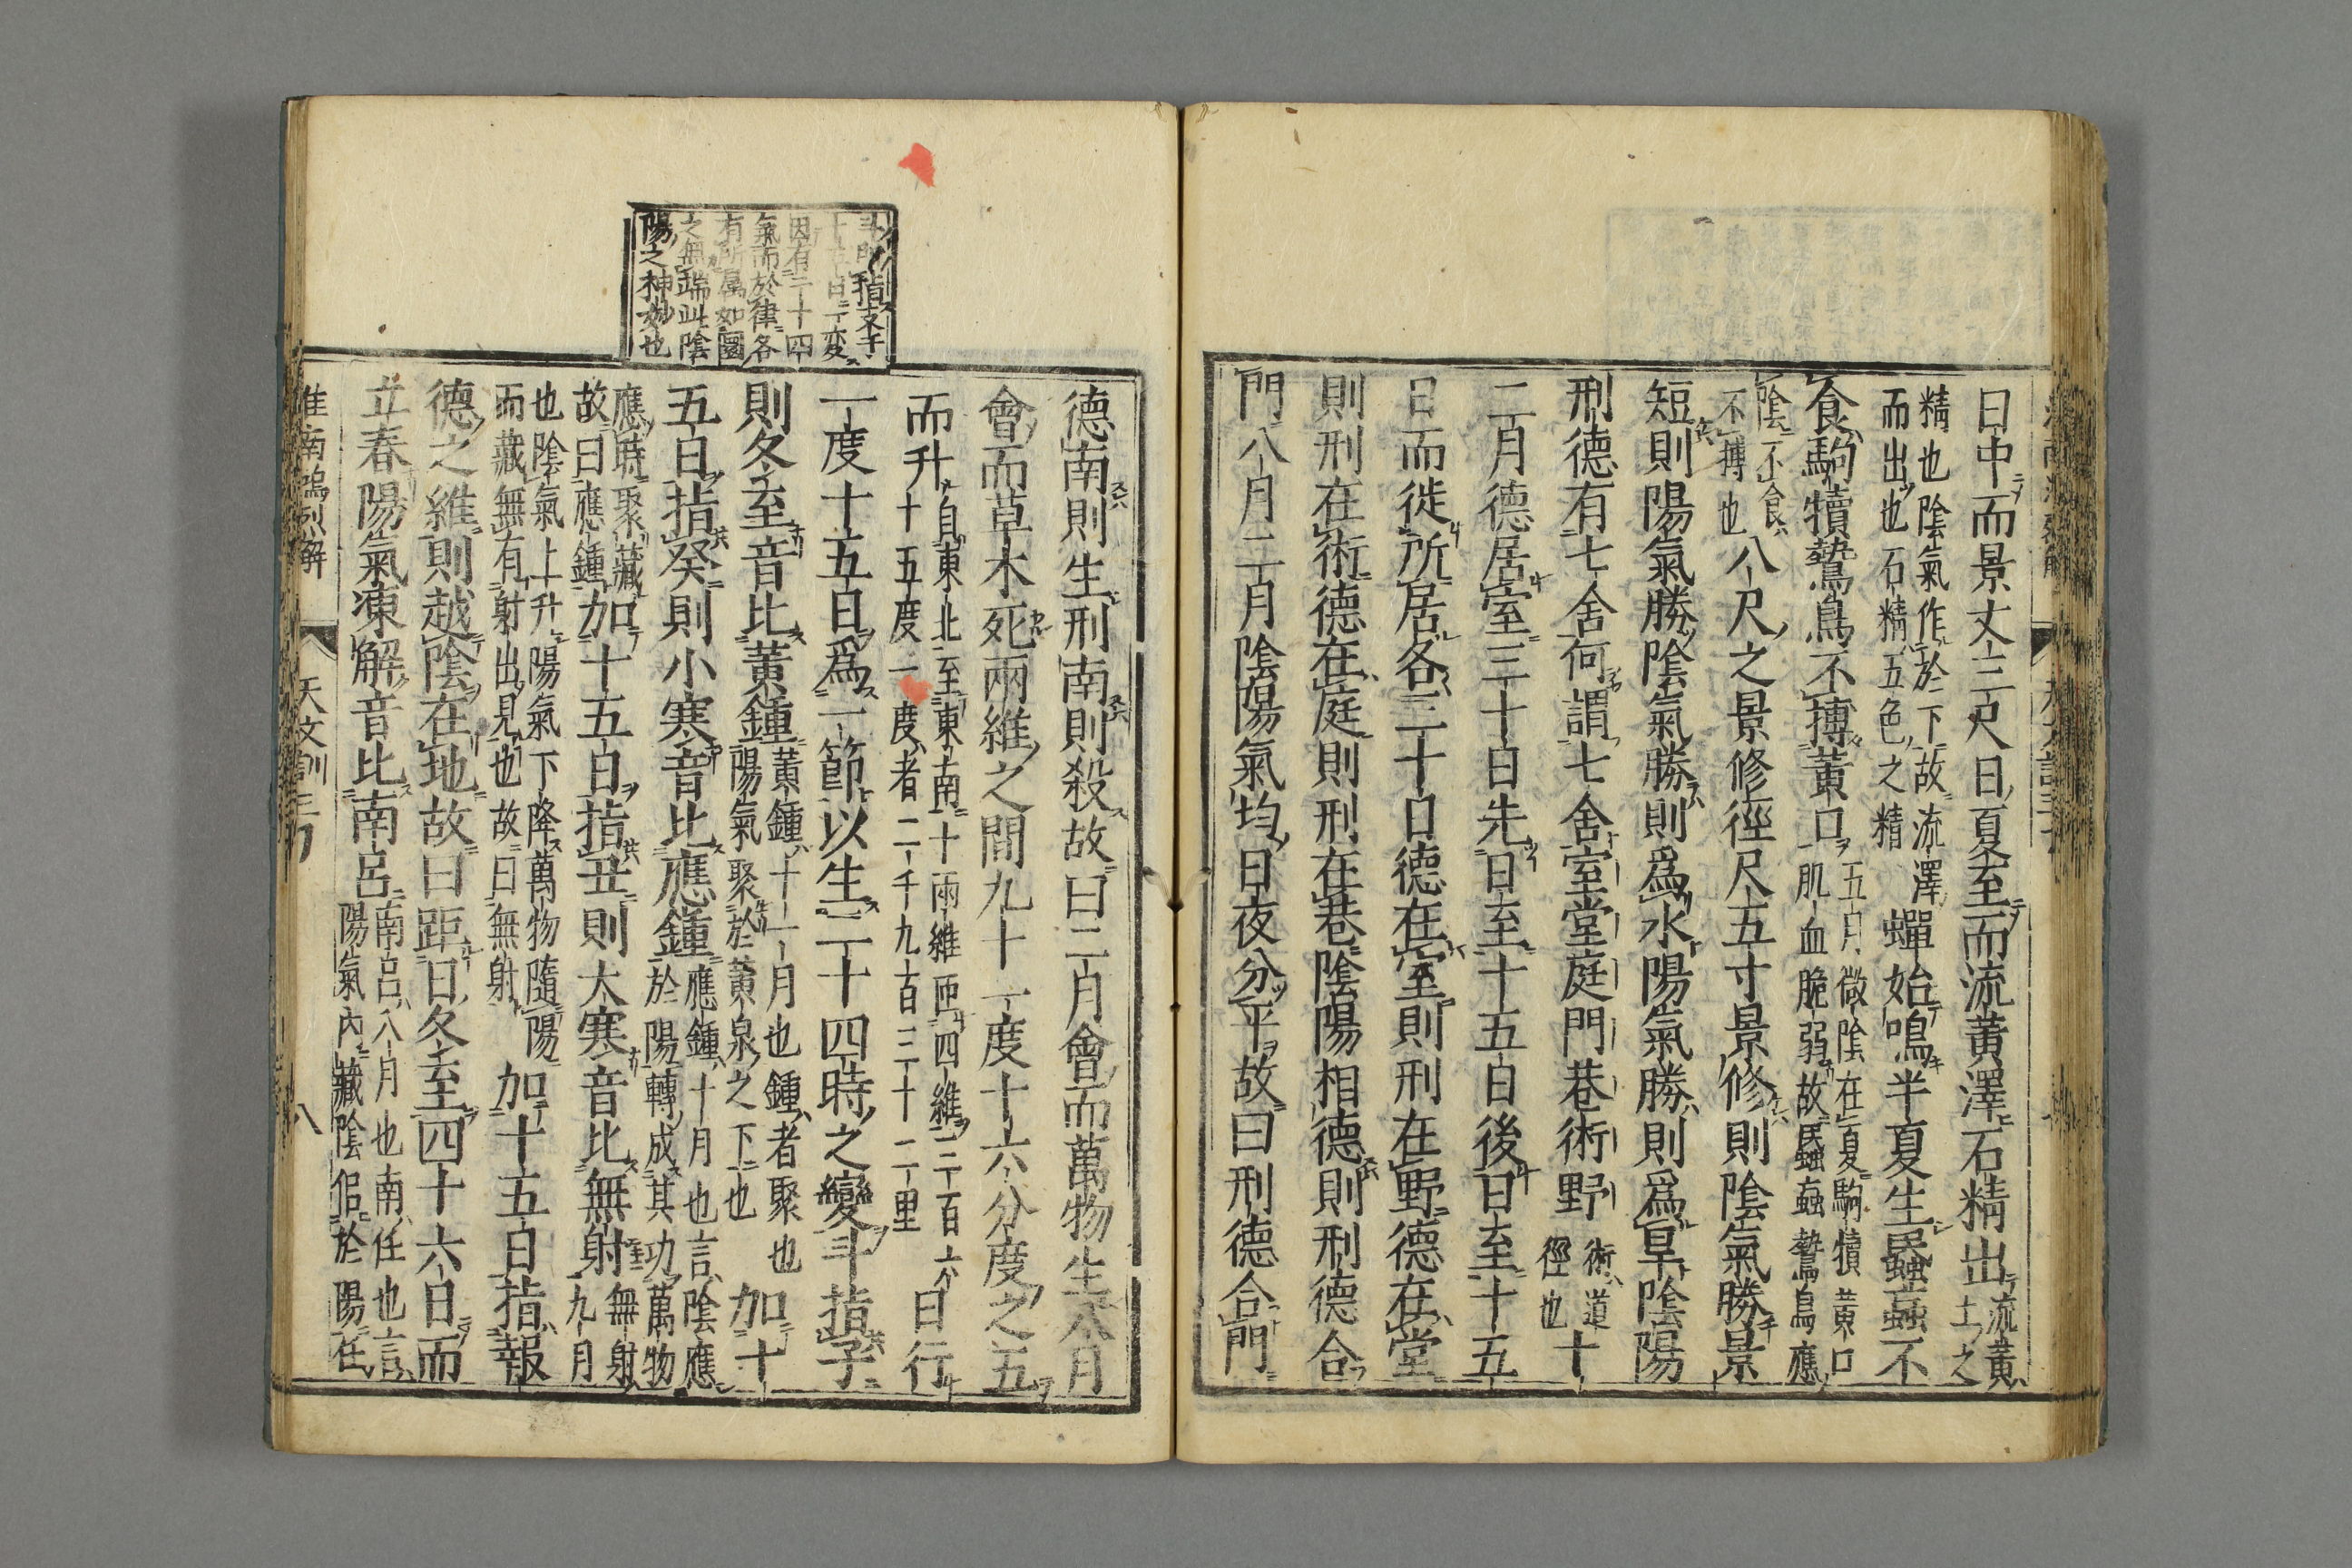 日中而景丈三尺日夏至而流黃澤石精出流黃土之
精也陰氣作於下故流澤而出也石精五色之精蟬始鳴半夏生蟁䖟不
食駒犢鷙鳥不搏黃口五月微陰在夏駒犢黃口肌血脆弱故蟁䖟鷙鳥應
陰不食不搏也八尺之景修徑尺五寸景修則陰氣勝景
短則陽氣勝陰氣勝則爲水陽氣勝則爲旱陰陽
刑德有七舍何謂七舍室堂庭門巷術野術道徑也十
二月德居室三十日先日至十五日後日至十五
日而徙所居各三十日德在室則刑在野德在堂
則刑在術德在庭則刑在巷陰陽相德則刑德合
門八月二月陰陽氣均日夜分平故曰刑德合門
德南則生刑南則殺故曰二月會而萬物生八月
會而草木死兩維之間九十一度十六分度之五
而升自東北至東南十兩維匝四維三百六十五度一度者二千九百三十二里日行
一度十五日爲一節以生二十四時之變斗指子
則冬至音比黃鍾黃鍾十一月也鍾者聚也陽氣聚於黃泉之下也加十
五日指癸則小寒音比應鍾應鍾十月也言陰應於陽轉成其功萬物
應時聚藏故曰應鍾加十五日指丑則大寒音比無射無射九月
也陰氣上升陽氣下降萬物隨陽而藏無有射出見也故曰無射加十五日指報
德之維則越陰在地故曰距日冬至四十六日而
立春陽氣凍解音比南呂南呂八月也南任也言陽氣內藏陰侶於陽任
淮南鴻烈解 天文訓三 八
因有二十四
氣而於律各
有所屬如圜
之無端此陰
陽之神妙也